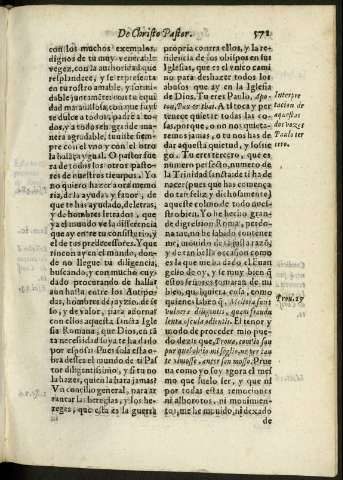 De Christo Pastor. 571
con los muchos exemplos,
dignos de tu muy venerable
vegez, con la authoridad que
resplandece, y se representa
en tu rostro amable, y formi-
dable juntamente con tu equi
dad marauillosa, que es fuerte
y dulce a todos, padre a to-
dos, y a todos en grande ma-
nera agradable, tu vniste siem-
pre con el vno y con el otro
la balança ygual. O pastor
ra de todos los otros pasto-
res de nuestros tiempos! Yo
no quiero hazer aora memo-
ria, de la ayuda, y fauor, de
que te has ayudado, de letras,
y de hombres letrados, que
ya el mundo ve la differencia
que ay entre este Pontificado,
y el de tus predecessores. Y que
rincon ay en el mundo, don-
de no llegue tu diligencia,
buscando, y con mucho cuy-
dado procurando de hallar
aun hasta entre los Antipo-
das, hombres de juyzio, de se
so, y de valor, para adornar
con ellos aquesta sancta Igle
sia Romana, que en Dios, en
ta necessidad, o ya te ha dado
por esposa? Pues si da esta o-
bra dessea el mundo de ti Pas
tor diligentissimo, y si tu no
la hazes, quien la hara jamas?
Vn concilio general, para ar-
rancar las heregias, y los he-
reges, que esta es la guerra
propria contra ellos, y la re-
sidencia de los obispos en sus
Iglesias, que es el vnico cami
no para deshazer todos los
abusos que ay en la Iglesia
de Dios. Tu eres Paulo,
A ti toca y per-
tenece quietar todas las co-
sas, porque, o no nos quieta-
remos jamas, o tu nos has de
dar aquesta quietud, y sossie
go. Tu eres tercero, que es
numero perfecto, numero de
la Trinidad sanctade ti ha de
nacer (pues que has comença
do tan feliz y dichosamente)
aqueste colmo de todo nues-
tro bien. Yo he hecho gran-
de digression Roma, perdo-
name, que no he hablado contene
me, mouido de justa razõ,
y de tan bella occasion como
es la que me ha dado el Euan
gelio de oy, y se muy bien q̃
estos fermones tomaran de mi
bien, qualquiera cosa, como
quienes labre q̃, Meliora sunt
vulnera diligentis, quam frauda
lenta oscula odientis. El tenor y
modo de proceder mio pue-
do dezir, que
Prue
ua como yo soy agora el mes
mo que suelo ser, y que ni
por todas estas remociones
ni alborotos, ni mouimien-
tos, me he mouido, ni dexado
de
Interpre
tacion de
aquestas
dos vozes
Paulo ter
cero.
Prou. 27